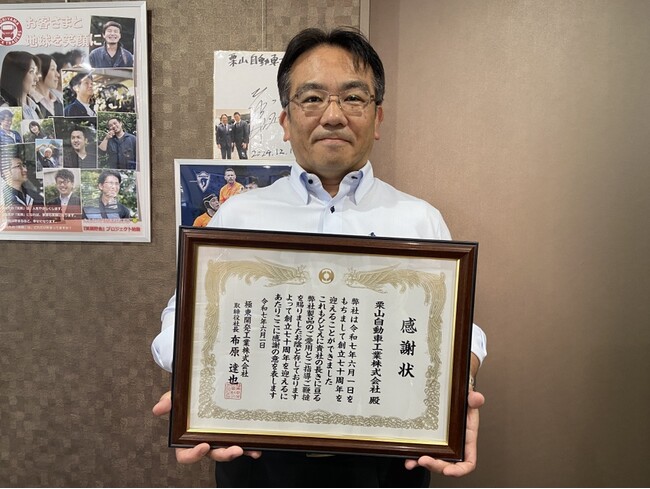 お客さまと
地球を笑顔に
栗山自動車工
2024.12.1
感謝状
栗山自動車工業株式会社 殿
弊社は令和七年六月一日を
もちまして創立七十周年を
迎えることができました
これもひとえに貴社の長きに亘る
弊社製品のご愛用とご指導ご鞭撻
を賜りましたお陰と存じております
よって創立七十周年を迎えるに
あたりここに感謝の意を表します
令和七年六月一日
極東開発工業株式会社
取締役社長 布原達也